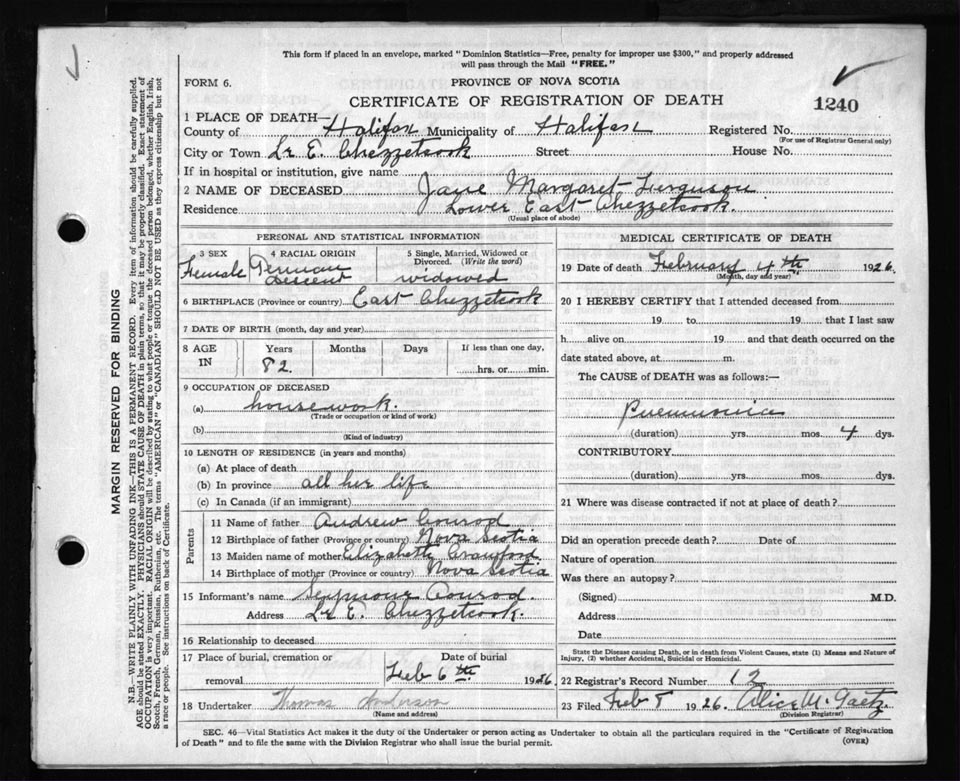 This form if placed in an envelope, marked "Dominion Statistics—Free, penalty for improper use $300," and properly addressed
will pass through the Mail "FREE."
FORM 6.
PROVINCE OF NOVA SCOTIA
CERTIFICATE OF REGISTRATION OF DEATH
1240
1 PLACE OF DEATH—
County of Halifax Municipality of Halifax Registered No.
(For use of Registrar General only)
City or Town Lr E. Chezzetcook Street House No.
If in hospital or institution, give name
2 NAME OF DECEASED Jane Margaret Ferguson
Residence Lower East Chezzetcook.
(Usual place of abode)
PERSONAL AND STATISTICAL INFORMATION
3 SEX Female
4 RACIAL ORIGIN German descent
5 Single, Married, Widowed or
Divorced. (Write the word)
widowed
6 BIRTHPLACE (Province or country) East Chezzetcook
7 DATE OF BIRTH (month, day and year)
8 AGE IN Years Months Days If less than one day,
82. hrs. or min.
9 OCCUPATION OF DECEASED
(a) housework.
(Trade or occupation or kind of work)
(b)
(Kind of industry)
10 LENGTH OF RESIDENCE (in years and months)
(a) At place of death
(b) In province all her life
(c) In Canada (if an immigrant)
Parents
11 Name of father Andrew Conrod
12 Birthplace of father (Province or country) Nova Scotia
13 Maiden name of mother Elizabeth Crawford
14 Birthplace of mother (Province or country) Nova Scotia
15 Informant's name Seymour Conrod.
Address Lr E. Chezzetcook.
16 Relationship to deceased
17 Place of burial, cremation or Date of burial
removal Feb 6th 1926.
18 Undertaker Thomas Anderson
(Name and address)
MEDICAL CERTIFICATE OF DEATH
19 Date of death February 4th 1926.
(Month, day and year)
20 I HEREBY CERTIFY that I attended deceased from
19 to 19 that I last saw
h alive on 19 and that death occurred on the
date stated above, at m.
The CAUSE of DEATH was as follows:—
Pneumonia
(duration) yrs. mos. 4 dys.
CONTRIBUTORY
(duration) yrs. mos. dys.
21 Where was disease contracted if not at place of death?
Did an operation precede death? Date of
Nature of operation
Was there an autopsy?
(Signed) M.D.
Address
Date
State the Disease causing Death, or in death from Violent Causes, state (1) Means and Nature of
Injury, (2) whether Accidental, Suicidal or Homicidal.
22 Registrar's Record Number 12
23 Filed Feb 8 1926. Alice M. Gaetz.
(Division Registrar)
SEC. 46—Vital Statistics Act makes it the duty of the Undertaker or person acting as Undertaker to obtain all the particulars required in the "Certificate of Registration
of Death" and to file the same with the Division Registrar who shall issue the burial permit.
(OVER)
MARGIN RESERVED FOR BINDING
N.B.—WRITE PLAINLY WITH UNFADING INK—THIS IS A PERMANENT RECORD. Every item of information should be carefully supplied.
AGE should be stated EXACTLY. PHYSICIANS should STATE CAUSE OF DEATH in plain terms, so that it may be properly classified. Exact statement of
OCCUPATION is very important. RACIAL ORIGIN will be described by stating to what people or tongue the deceased person belonged, whether English, Irish,
Scotch, French, German, Russian, Ruthenian, etc. The terms "AMERICAN" or "CANADIAN" SHOULD NOT BE USED as they express citizenship but not
a race or people. See instructions on back of Certificate.